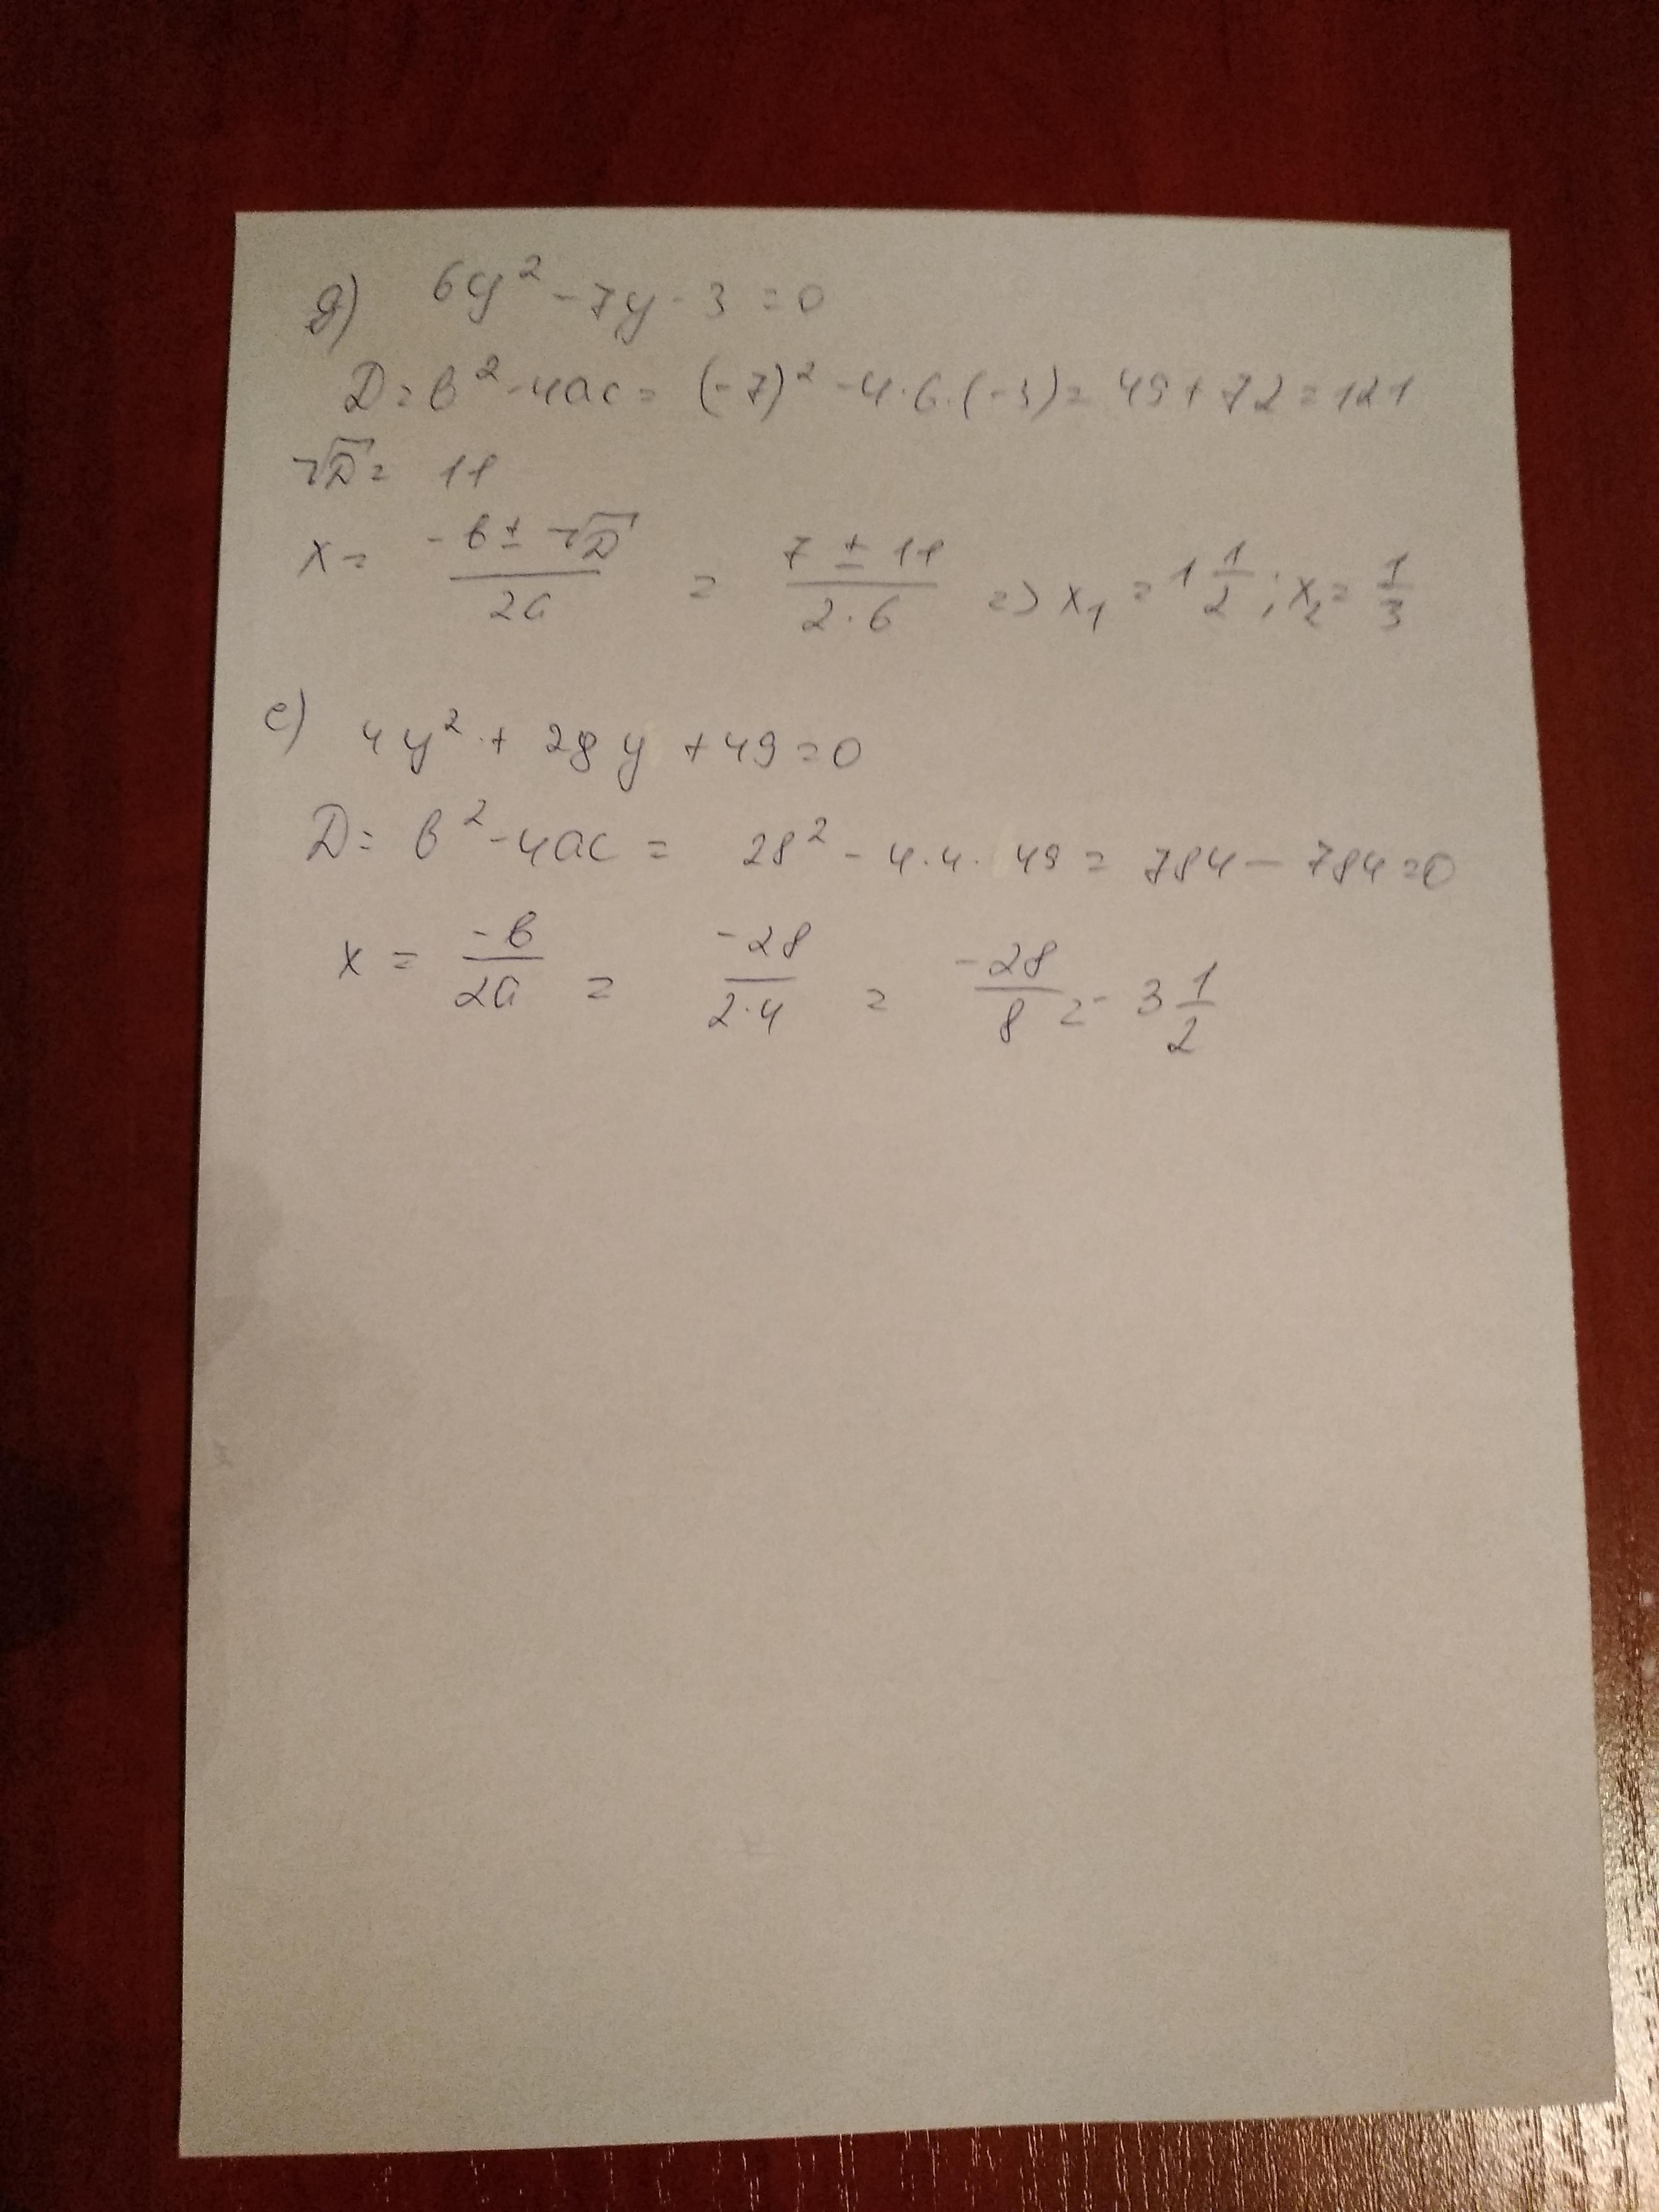 д) 6y² - 7y - 3 = 0
D = b² - 4ac = (-7)² - 4·6·(-3) = 49 + 72 = 121
√D = 11
x = (-b ± √D)/(2a) = (7 ± 11)/(2·6) => x₁ = 1 1/2 ; x₂ = 1/3
е) 4y² + 28y + 49 = 0
D = b² - 4ac = 28² - 4·4·49 = 784 - 784 = 0
x = (-b)/(2a) = (-28)/(2·4) = (-28)/8 = -3 1/2